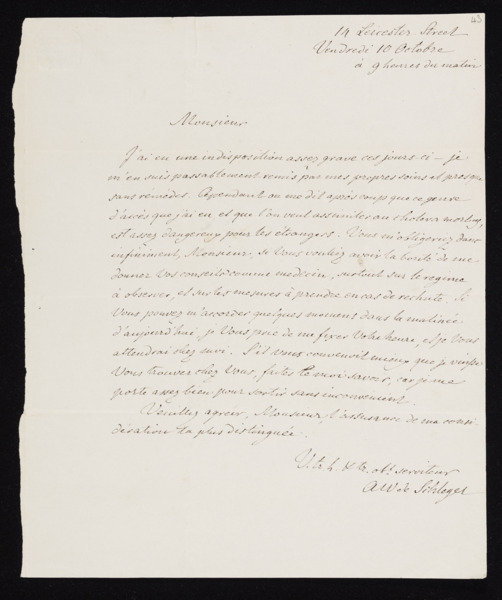 43
14 Leicester Street
Vendredi 10 Octobre
à 9 heures du matin
Monsieur
J'ai eu une indisposition assez grave ces jours-ci — je
m'en suis passablement remis par mes propres soins et presque
sans remèdes. Cependant on me dit après coup que ce genre
d'accès que j'ai eu et que l'on veut assimiler au cholera morbus,
est assez dangereux pour les étrangers. Vous m'obligeriez donc
infiniment, Monsieur, si vous vouliez avoir la bonté de me
donner vos conseils comme médecin, surtout sur le regime
à observer, et sur les mesures à prendre en cas de rechute. Si
vous pouvez m'accorder quelques moments dans la matinée
d'aujourd'hui, je vous prie de me fixer votre heure, et je vous
attendrai chez moi. S'il vous convenoit mieux que je vinsse
vous trouver chez vous, faites le moi savoir, car je me
porte assez bien pour sortir sans inconvénient.
Veuillez agréer, Monsieur, l'assurance de ma consi-
dération la plus distinguée.
V. tr. h. & tr. obt serviteur
AW de Schlegel